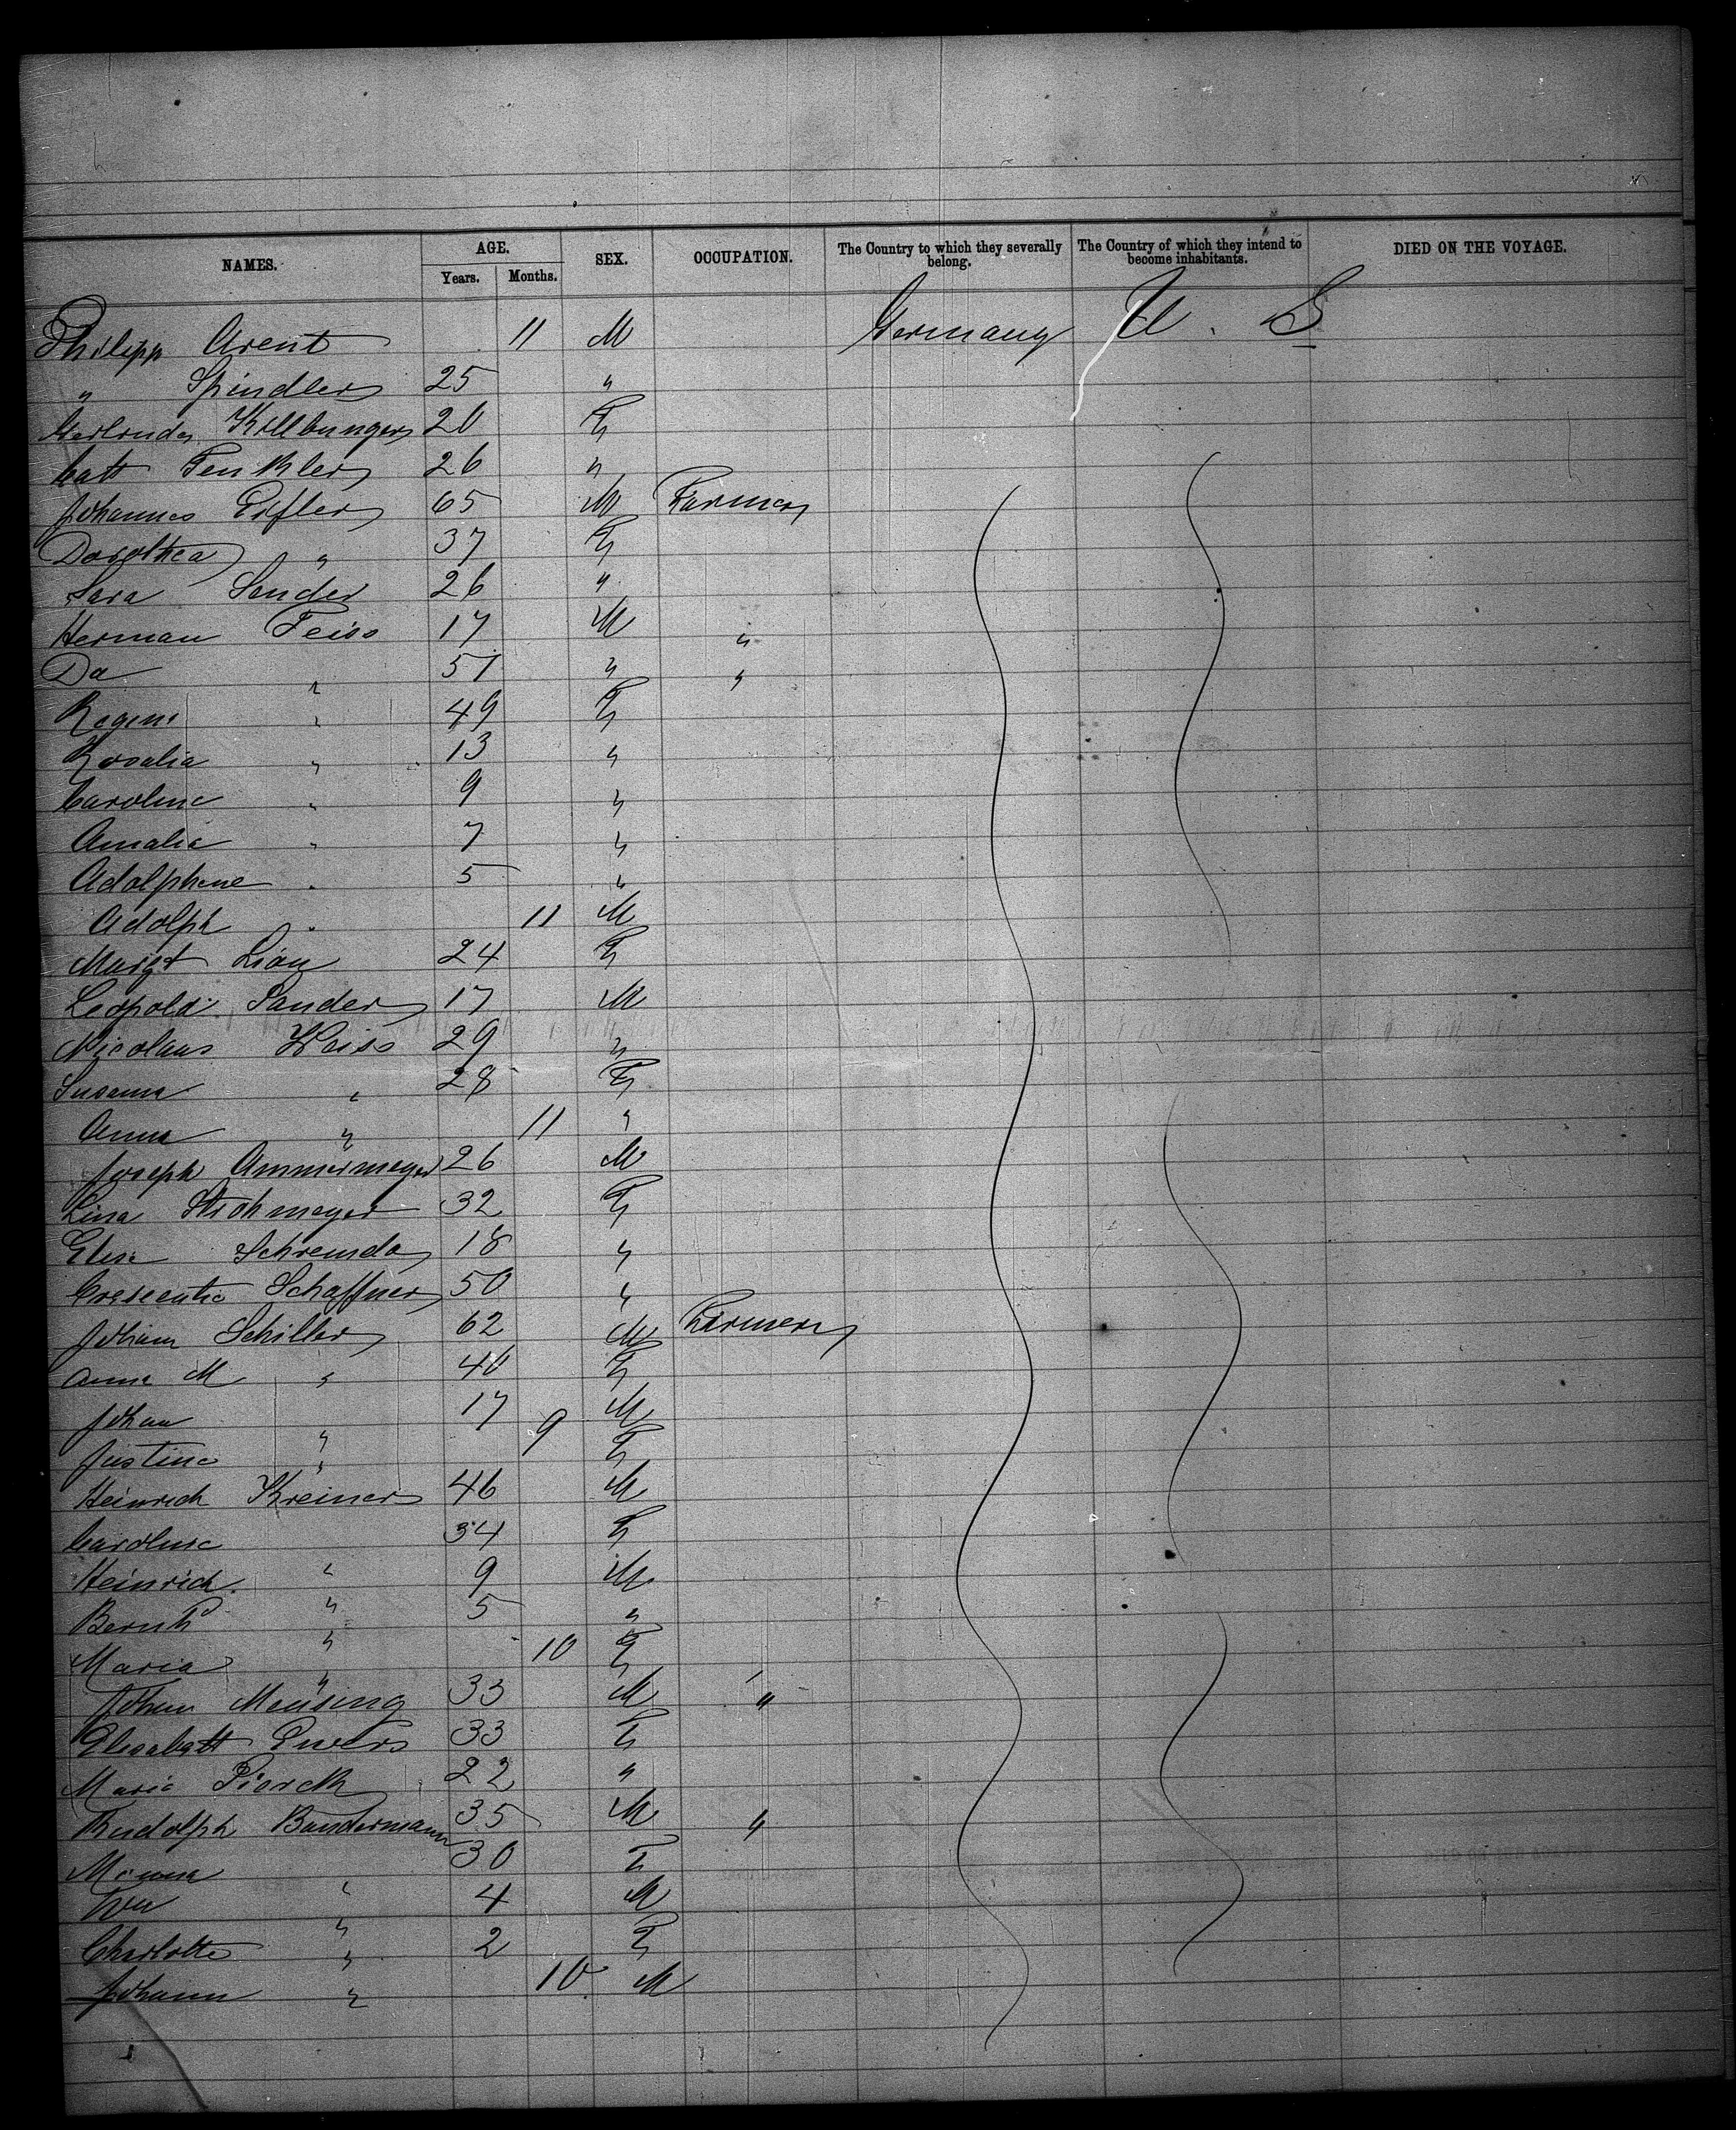 NAMES. AGE. SEX. OCCUPATION. The Country to which they severally belong. The Country of which they intend to become inhabitants. DIED ON THE VOYAGE.
Years. Months.
Philipp Arent 11 M Germany U. S
" Spindler 25 "
Killbunger 20 F
Cath 26 "
Johannes Eifler 65 M Farmer
Dorothea " 37 F
Sara Sender 26 "
Herman Feiss 17 M "
Do " 51 " "
Regine " 49 F
Rosalia " 13 "
Caroline " 9 "
Amalia " 7 "
Adolphene " 5 "
Adolph " 11 M
Margt Lion 24 F
Leopold Sander 17 M
Nicolaus Weiss 29 "
Susanna " 28 F
Anna " 11 "
Joseph Ammermeyer 26 M
Lina Strohmeyer 32 F
Elise 18 "
Crescentia Schaffner 50 "
Johann Schiller 62 M Farmer
Anna M " 40 F
Johan " 17 M
Justine " 9 F
Heinrich Kreiner 46 M
Caroline " 34 F
Heinrich " 9 M
Bernhd " 5 "
Maria " 10 F
Johan Meusing 33 M "
Elisabeth Ewers 33 F
Marie Pierck 22 "
Rudolph Bandermann 35 M "
Minna " 30 F
4 M
Charlotte " 2 F
Johann " 10 M